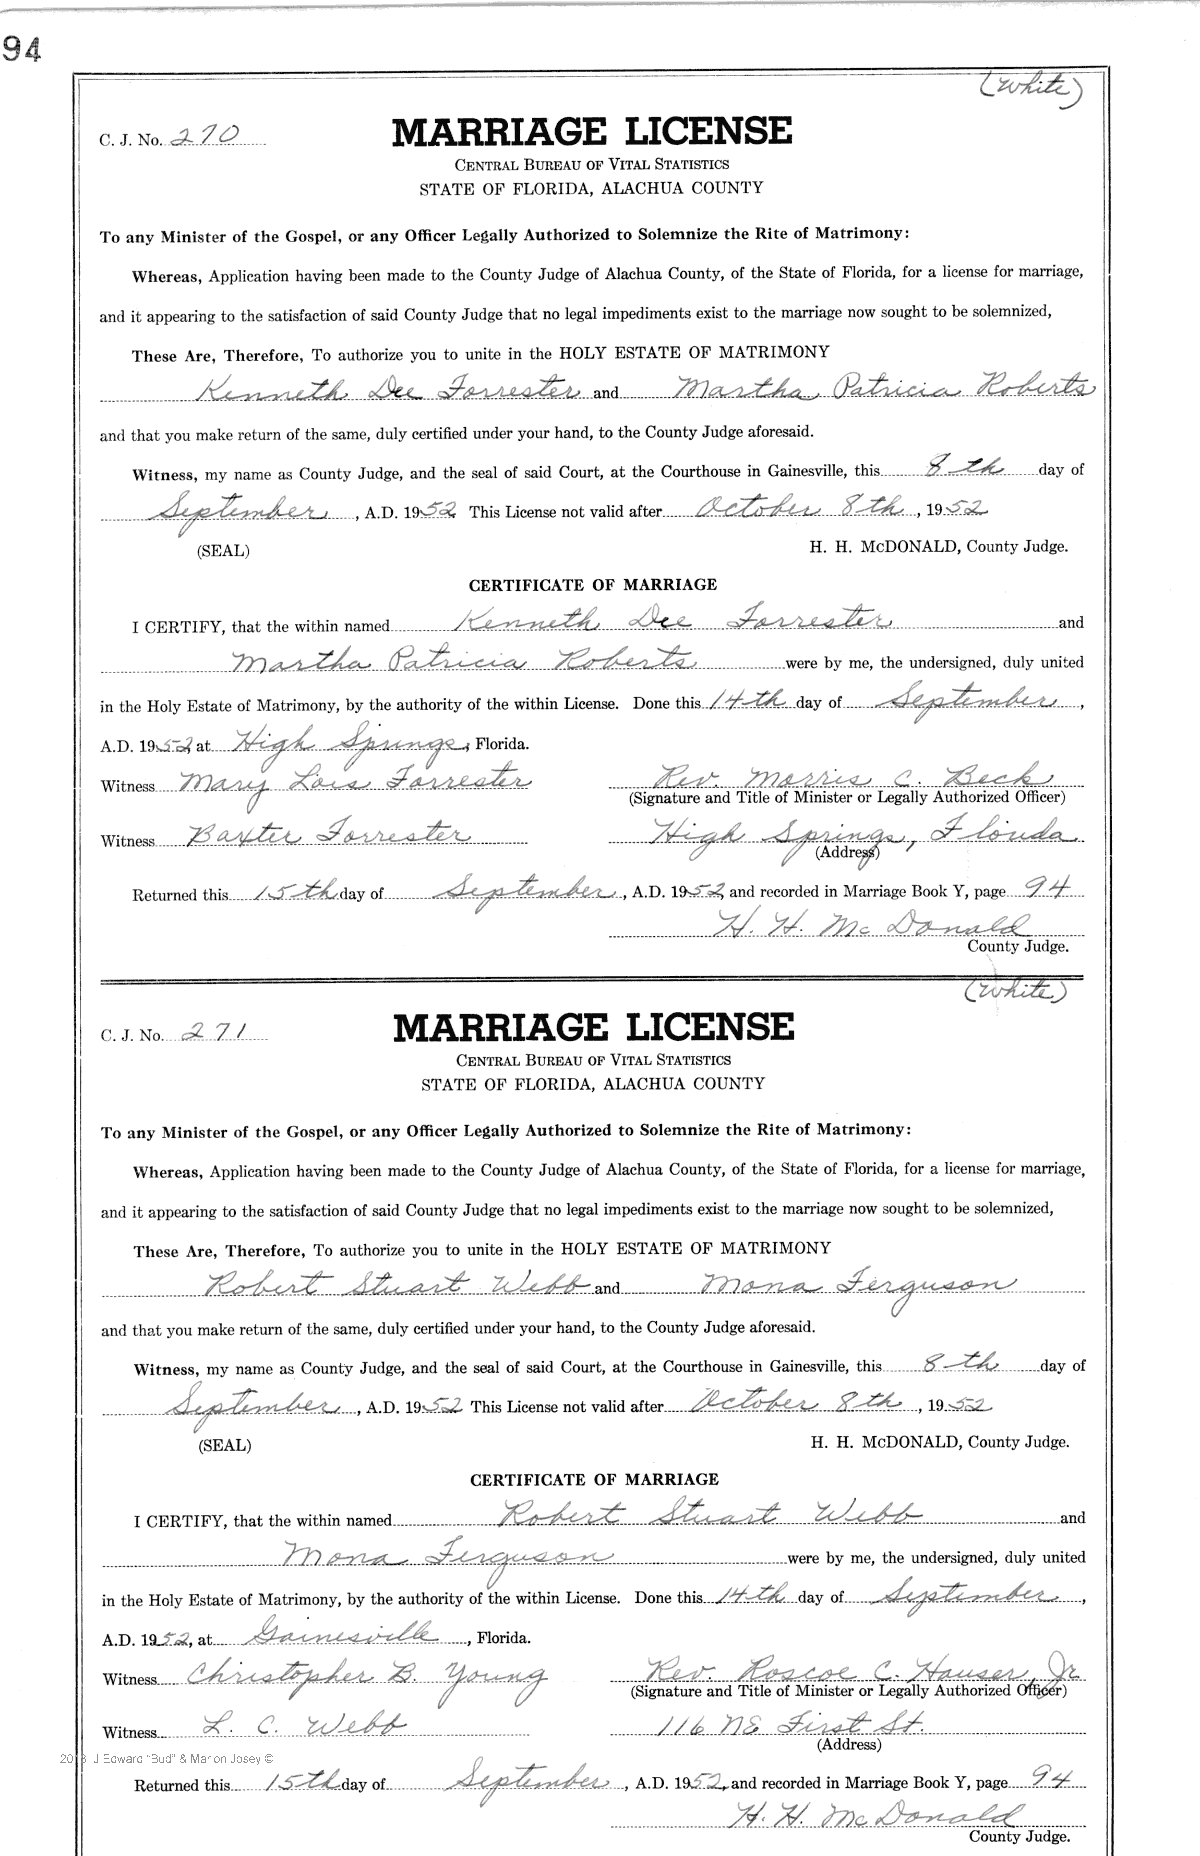 94
(White)
C. J. No. 270
MARRIAGE LICENSE
CENTRAL BUREAU OF VITAL STATISTICS
STATE OF FLORIDA, ALACHUA COUNTY
To any Minister of the Gospel, or any Officer Legally Authorized to Solemnize the Rite of Matrimony:
Whereas, Application having been made to the County Judge of Alachua County, of the State of Florida, for a license for marriage,
and it appearing to the satisfaction of said County Judge that no legal impediments exist to the marriage now sought to be solemnized,
These Are, Therefore, To authorize you to unite in the HOLY ESTATE OF MATRIMONY
Kenneth Dee Forrester and Martha Patricia Roberts
and that you make return of the same, duly certified under your hand, to the County Judge aforesaid.
Witness, my name as County Judge, and the seal of said Court, at the Courthouse in Gainesville, this 8th day of
September, A.D. 1952 This License not valid after October 8th, 1952
(SEAL) H. H. McDONALD, County Judge.
CERTIFICATE OF MARRIAGE
I CERTIFY, that the within named Kenneth Dee Forrester and
Martha Patricia Roberts were by me, the undersigned, duly united
in the Holy Estate of Matrimony, by the authority of the within License. Done this 14th day of September,
A.D. 1952, at High Springs, Florida.
Witness Mary Lois Forrester Rev. Morris C. Beck
(Signature and Title of Minister or Legally Authorized Officer)
Witness Baxter Forrester High Springs, Florida
(Address)
Returned this 15th day of September, A.D. 1952, and recorded in Marriage Book Y, page 94
H. H. McDonald
County Judge.
(White)
C. J. No. 271
MARRIAGE LICENSE
CENTRAL BUREAU OF VITAL STATISTICS
STATE OF FLORIDA, ALACHUA COUNTY
To any Minister of the Gospel, or any Officer Legally Authorized to Solemnize the Rite of Matrimony:
Whereas, Application having been made to the County Judge of Alachua County, of the State of Florida, for a license for marriage,
and it appearing to the satisfaction of said County Judge that no legal impediments exist to the marriage now sought to be solemnized,
These Are, Therefore, To authorize you to unite in the HOLY ESTATE OF MATRIMONY
Robert Stuart Webb and Mona Ferguson
and that you make return of the same, duly certified under your hand, to the County Judge aforesaid.
Witness, my name as County Judge, and the seal of said Court, at the Courthouse in Gainesville, this 8th day of
September, A.D. 1952 This License not valid after October 8th, 1952
(SEAL) H. H. McDONALD, County Judge.
CERTIFICATE OF MARRIAGE
I CERTIFY, that the within named Robert Stuart Webb and
Mona Ferguson were by me, the undersigned, duly united
in the Holy Estate of Matrimony, by the authority of the within License. Done this 14th day of September,
A.D. 1952, at Gainesville, Florida.
Witness Christopher B. Young Rev. Roscoe C. Hauser, Jr
(Signature and Title of Minister or Legally Authorized Officer)
Witness L. C. Webb 116 NE First St.
(Address)
2018 J Edward "Bud" & Marion Josey ©
Returned this 15th day of September, A.D. 1952, and recorded in Marriage Book Y, page 94
H. H. McDonald
County Judge.